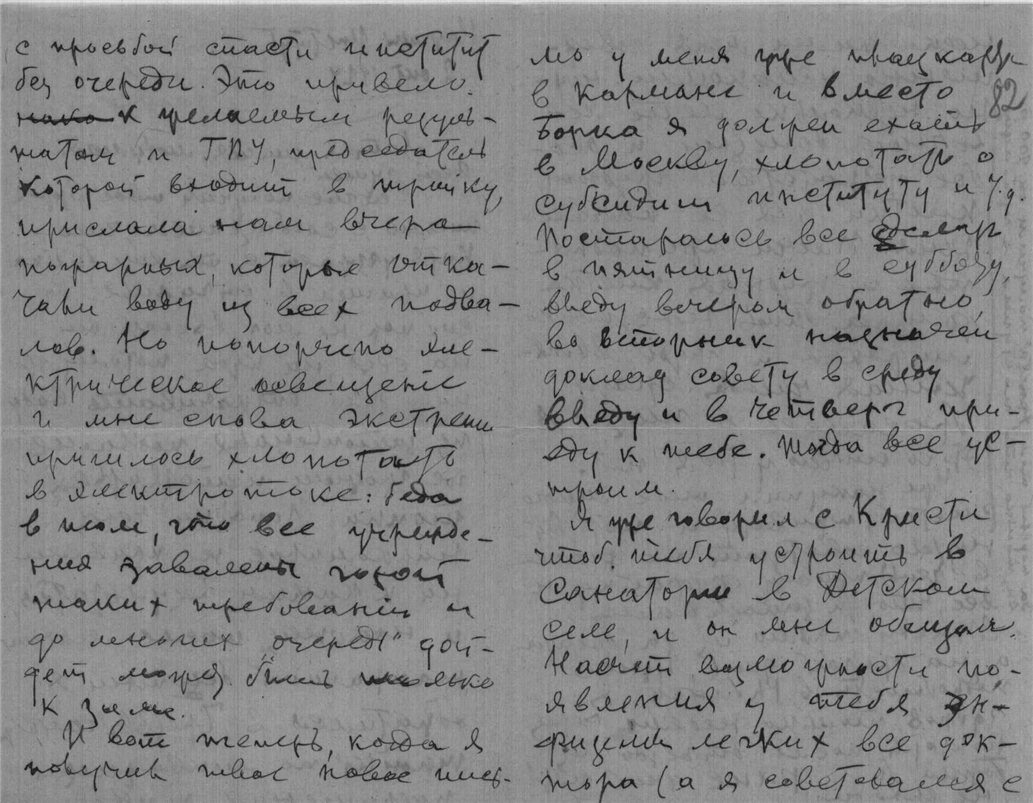 с просьбой спасти институт
без очереди. Это привело
к желаемым резуль-
татам и ГПУ, председатель
которой входит в тройку,
прислала нам вчера
пожарных, которые отка-
чали воду из всех подва-
лов. Но попорчено эле-
ктрическое освещение
и мне снова экстренно
пришлось хлопотать
в электротоке: беда
в том, что все учрежде-
ния завалены горой
таких требований и
до многих „очередь" дой-
дет может быть только
к зиме.
И вот теперь, когда я
получил твое новое пись-
мо у меня уже плацкарта
в кармане и вместо
Борка я должен ехать
в Москву, хлопотать о
субсидии институту и т.д.
Постараюсь все сделать
в пятницу и в субботу,
выеду вечером обратно,
во вторник назначен
доклад совету в среду
выеду и в четверг при-
еду к тебе. Тогда все ус-
троим.
Я уже говорил с Кристи
чтоб. тебя устроить в
Санатории в Детском
селе, и он мне обещал.
Насчет возможности по-
явления у тебя эм-
физемы легких все док-
тора (а я советовался с
82